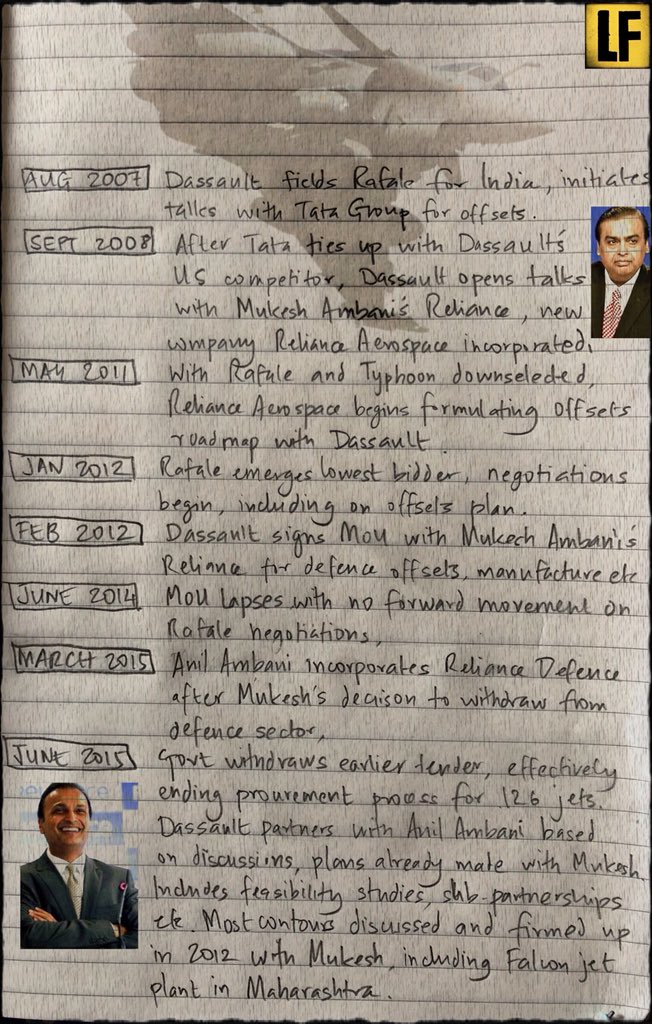 LF
AUG 2007 Dassault fields Rafale for India, initiates
talks with Tata Group for offsets.
SEPT 2008 After Tata ties up with Dassault's
US competitor, Dassault opens talks
with Mukesh Ambani's Reliance, new
company Reliance Aerospace incorporated.
MAY 2011 With Rafale and Typhoon downselected,
Reliance Aerospace begins formulating offsets
roadmap with Dassault
JAN 2012 Rafale emerges lowest bidder, negotiations
begin, including on offsets plan.
FEB 2012 Dassault signs MoU with Mukesh Ambani's
Reliance for defence offsets, manufacture etc
JUNE 2014 MoU lapses with no forward movement on
Rafale negotiations,
MARCH 2015 Anil Ambani incorporates Reliance Defence
after Mukesh's decison to withdraw from
defence sector,
JUNE 2015 Govt withdraws earlier tender, effectively
ending procurement process for 126 jets.
Dassault partners with Anil Ambani based
on discussions, plans already mate with Mukesh.
Includes feasibility studies, sub-partnerships
etc. Most contours discussed and firmed up
in 2012 with Mukesh, including Falcon jet
plant in Maharashtra.